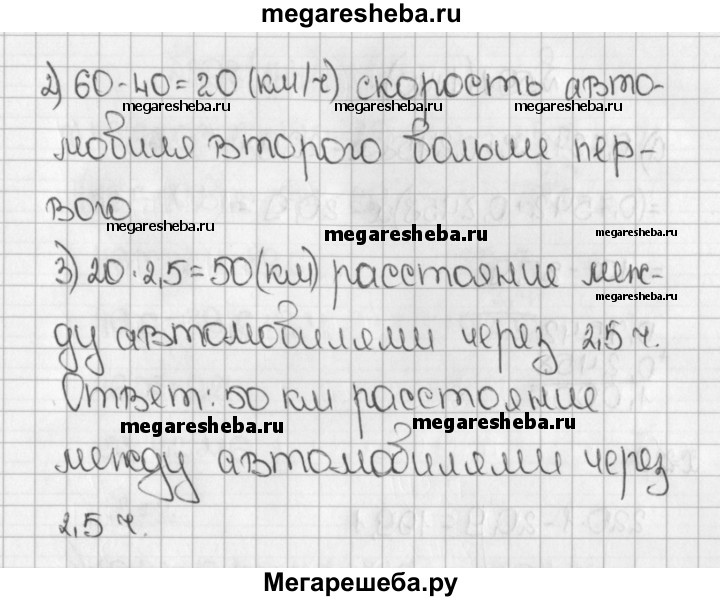 megaresheba.ru
2) 60-40=20 (км/ч) скорость авто-
megaresheba.ru megaresheba.ru megaresheba.ru
мобиля второго больше пер-
вого
megaresheba.ru
megaresheba.ru
megaresheba.ru
3) 20·2,5=50(км) расстояние меж-
megaresheba.ru
ду автомобилями через 2,5 ч.
Ответ: 50 км расстояние
megaresheba.ru megaresheba.ru
между автомобилями через
2,5 ч.
Мегарешеба.ру